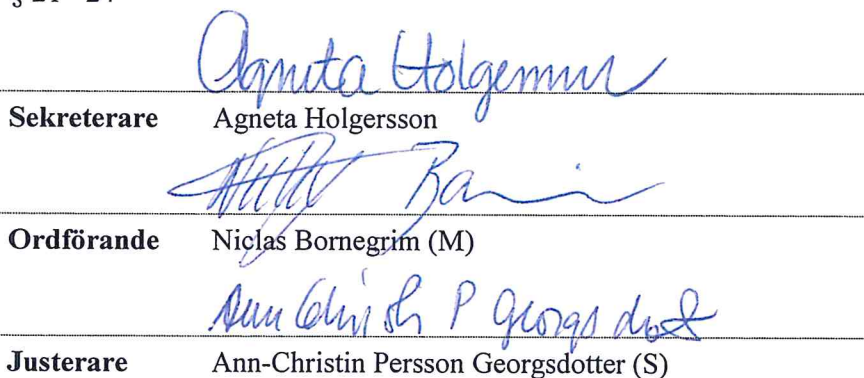 Agneta Holgersson
Sekreterare Agneta Holgersson
Ordförande Niclas Bornegrim (M)
Ann Christin P Georgsdott
Justerare Ann-Christin Persson Georgsdotter (S)